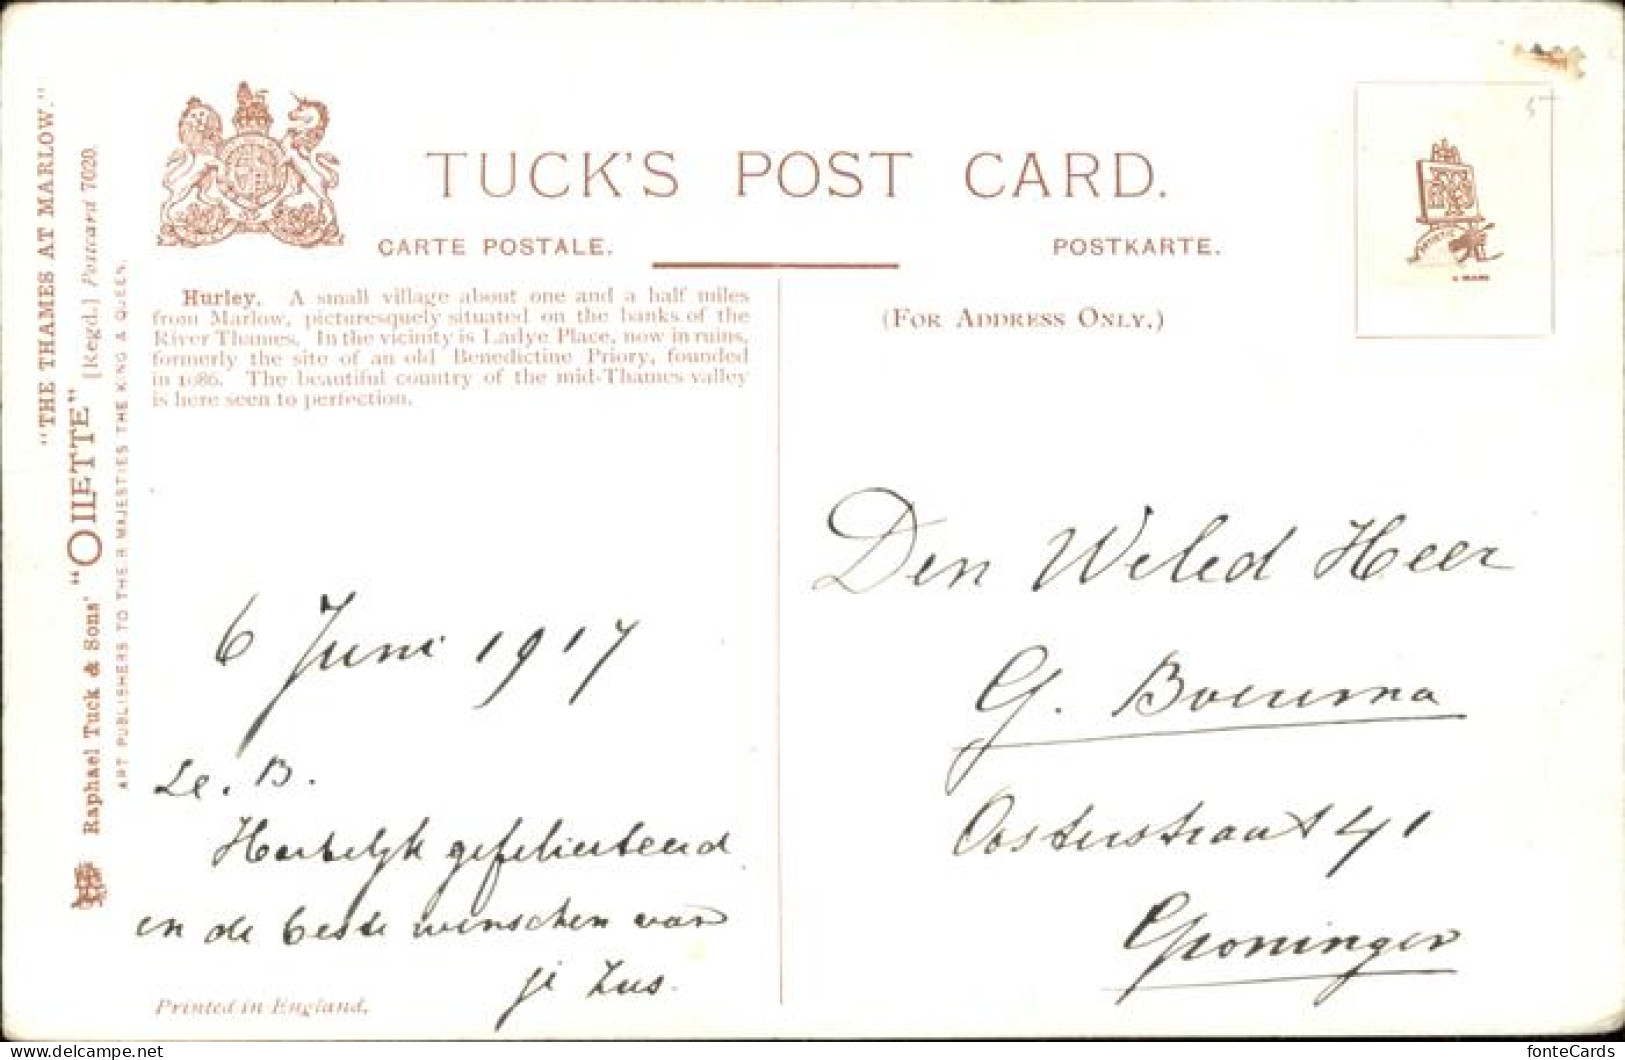 "THE THAMES AT MARLOW."
Raphael Tuck & Sons' "OILETTE" [Regd.] Postcard 7020.
ART PUBLISHERS TO THEIR MAJESTIES THE KING & QUEEN.
TUCK'S POST CARD.
CARTE POSTALE.
POSTKARTE.
(FOR ADDRESS ONLY.)
Hurley. A small village about one and a half miles
from Marlow, picturesquely situated on the banks of the
River Thames. In the vicinity is Ladye Place, now in ruins,
formerly the site of an old Benedictine Priory, founded
in 1086. The beautiful country of the mid-Thames valley
is here seen to perfection.
6 Juni 1917
Le. B.
Hartelijk gefeliciteerd
en de beste wenschen van
je Zus.
Printed in England.
Den Weled Heer
G. Boerma
Oosterstraat 41
Groningen
fonteCards